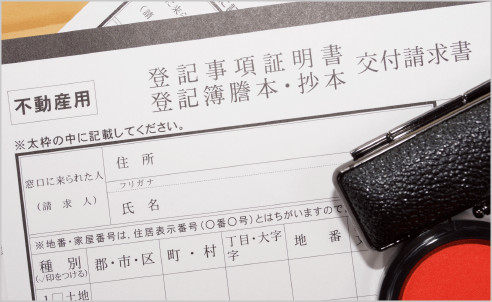 登記事項証明書
登記簿謄本・抄本 交付請求書
不動産用
※太枠の中に記載してください。
窓口に来られた人
(請求人)
住所
フリガナ
氏名
※地番・家屋番号は、住居表示番号(〇番〇号)とはちがいますので、
種別
(✓印をつける)
郡・市・区
町・村
丁目・大字
字
地番
1□土地